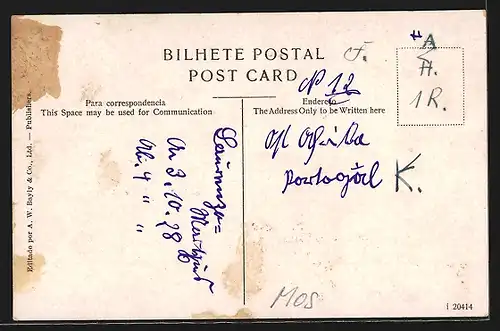 BILHETE POSTAL
POST CARD
Para correspondencia
This Space may be used for Communication
Endereto
The Address Only to be Written here
Nº 12
F.
A
H.
1R.
K.
An 3.10.28
" "
"
MOS
Editado por A. W. Bayly & Co., Ltd. — Publishers.
i 20414